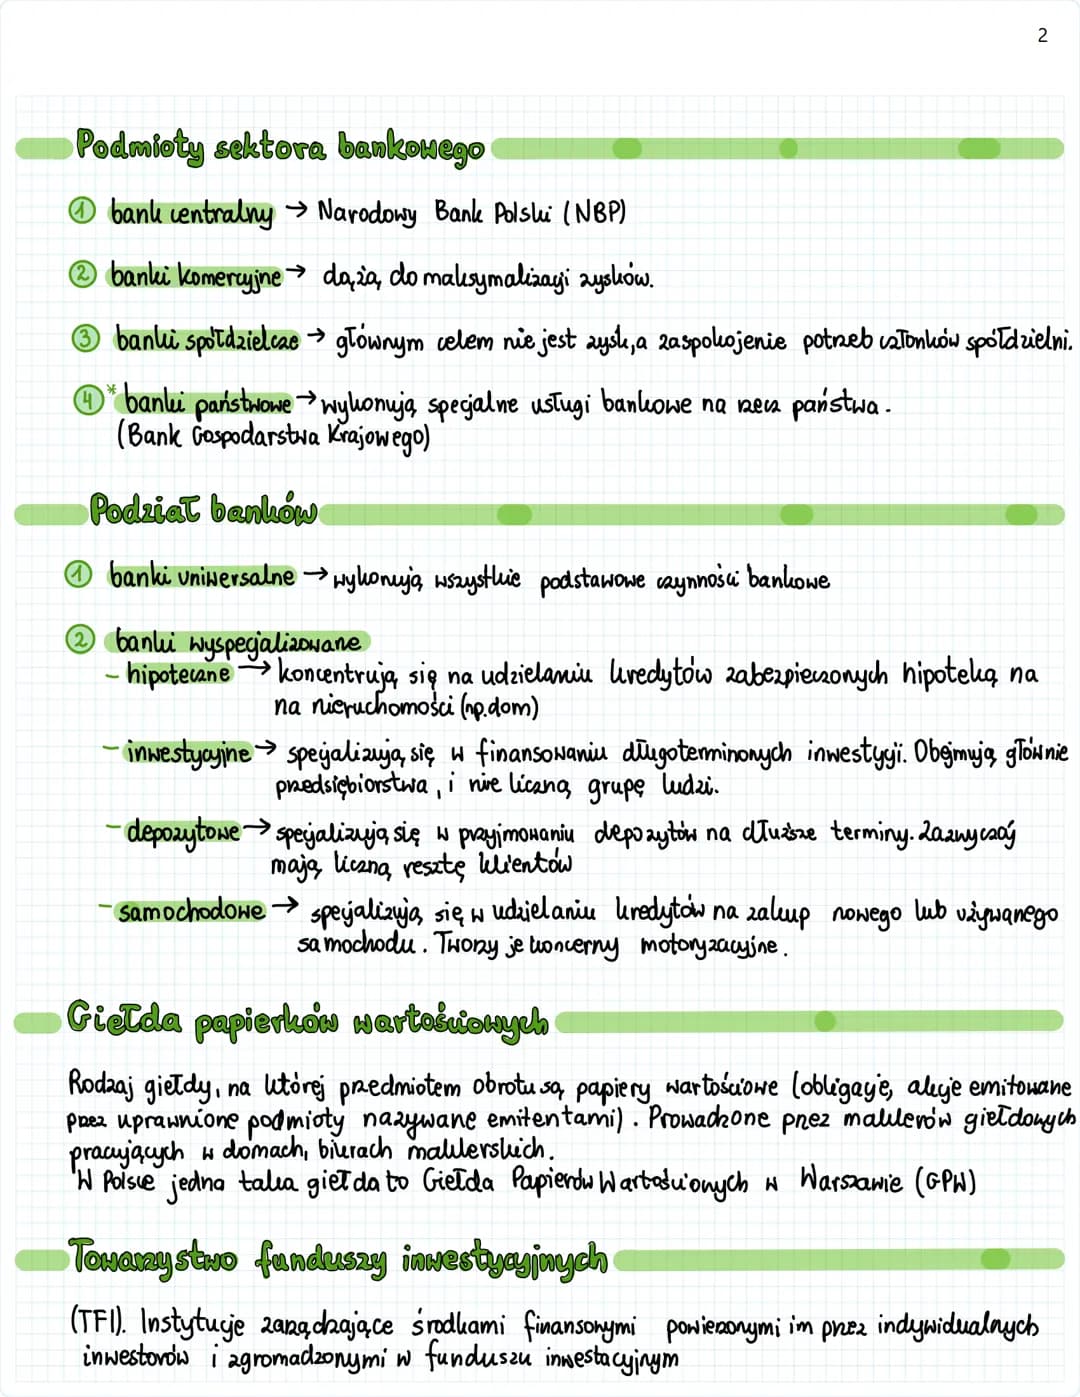 2
Podmioty sektora bankowego
① bank centralny → Narodowy Bank Polski (NBP)
② banki komercyjne → dążą do maksymalizacji zysków.
③ banki spółdzielcze → głównym celem nie jest zysk, a zaspokojenie potrzeb członków spółdzielni.
④* banki państwowe → wykonują specjalne usługi bankowe na rzecz państwa.
(Bank Gospodarstwa Krajowego)
Podział banków
① banki uniwersalne → wykonują wszystkie podstawowe czynności bankowe
② banki wyspecjalizowane
- hipoteczne → koncentrują się na udzielaniu kredytów zabezpieczonych hipoteką na
na nieruchomości (np. dom)
- inwestycyjne → specjalizują się w finansowaniu długoterminowych inwestycji. Obejmują głównie
przedsiębiorstwa, i nie liczną grupę ludzi.
- depozytowe → specjalizują się w przyjmowaniu depozytów na dłuższe terminy. Zazwyczaj
mają liczną resztę klientów
- samochodowe → specjalizują się w udzielaniu kredytów na zakup nowego lub używanego
samochodu. Tworzy je koncerny motoryzacyjne.
Giełda papierków wartościowych
Rodzaj giełdy, na której przedmiotem obrotu są papiery wartościowe (obligacje, akcje emitowane
przez uprawnione podmioty nazywane emitentami). Prowadzone przez maklerów giełdowych
pracujących w domach, biurach maklerskich.
W Polsce jedna taka giełda to Giełda Papierów Wartościowych w Warszawie (GPW)
Towarzystwo funduszy inwestycyjnych
(TFI). Instytucje zarządzające środkami finansowymi powierzonymi im przez indywidualnych
inwestorów i zgromadzonymi w funduszu inwestacyjnym